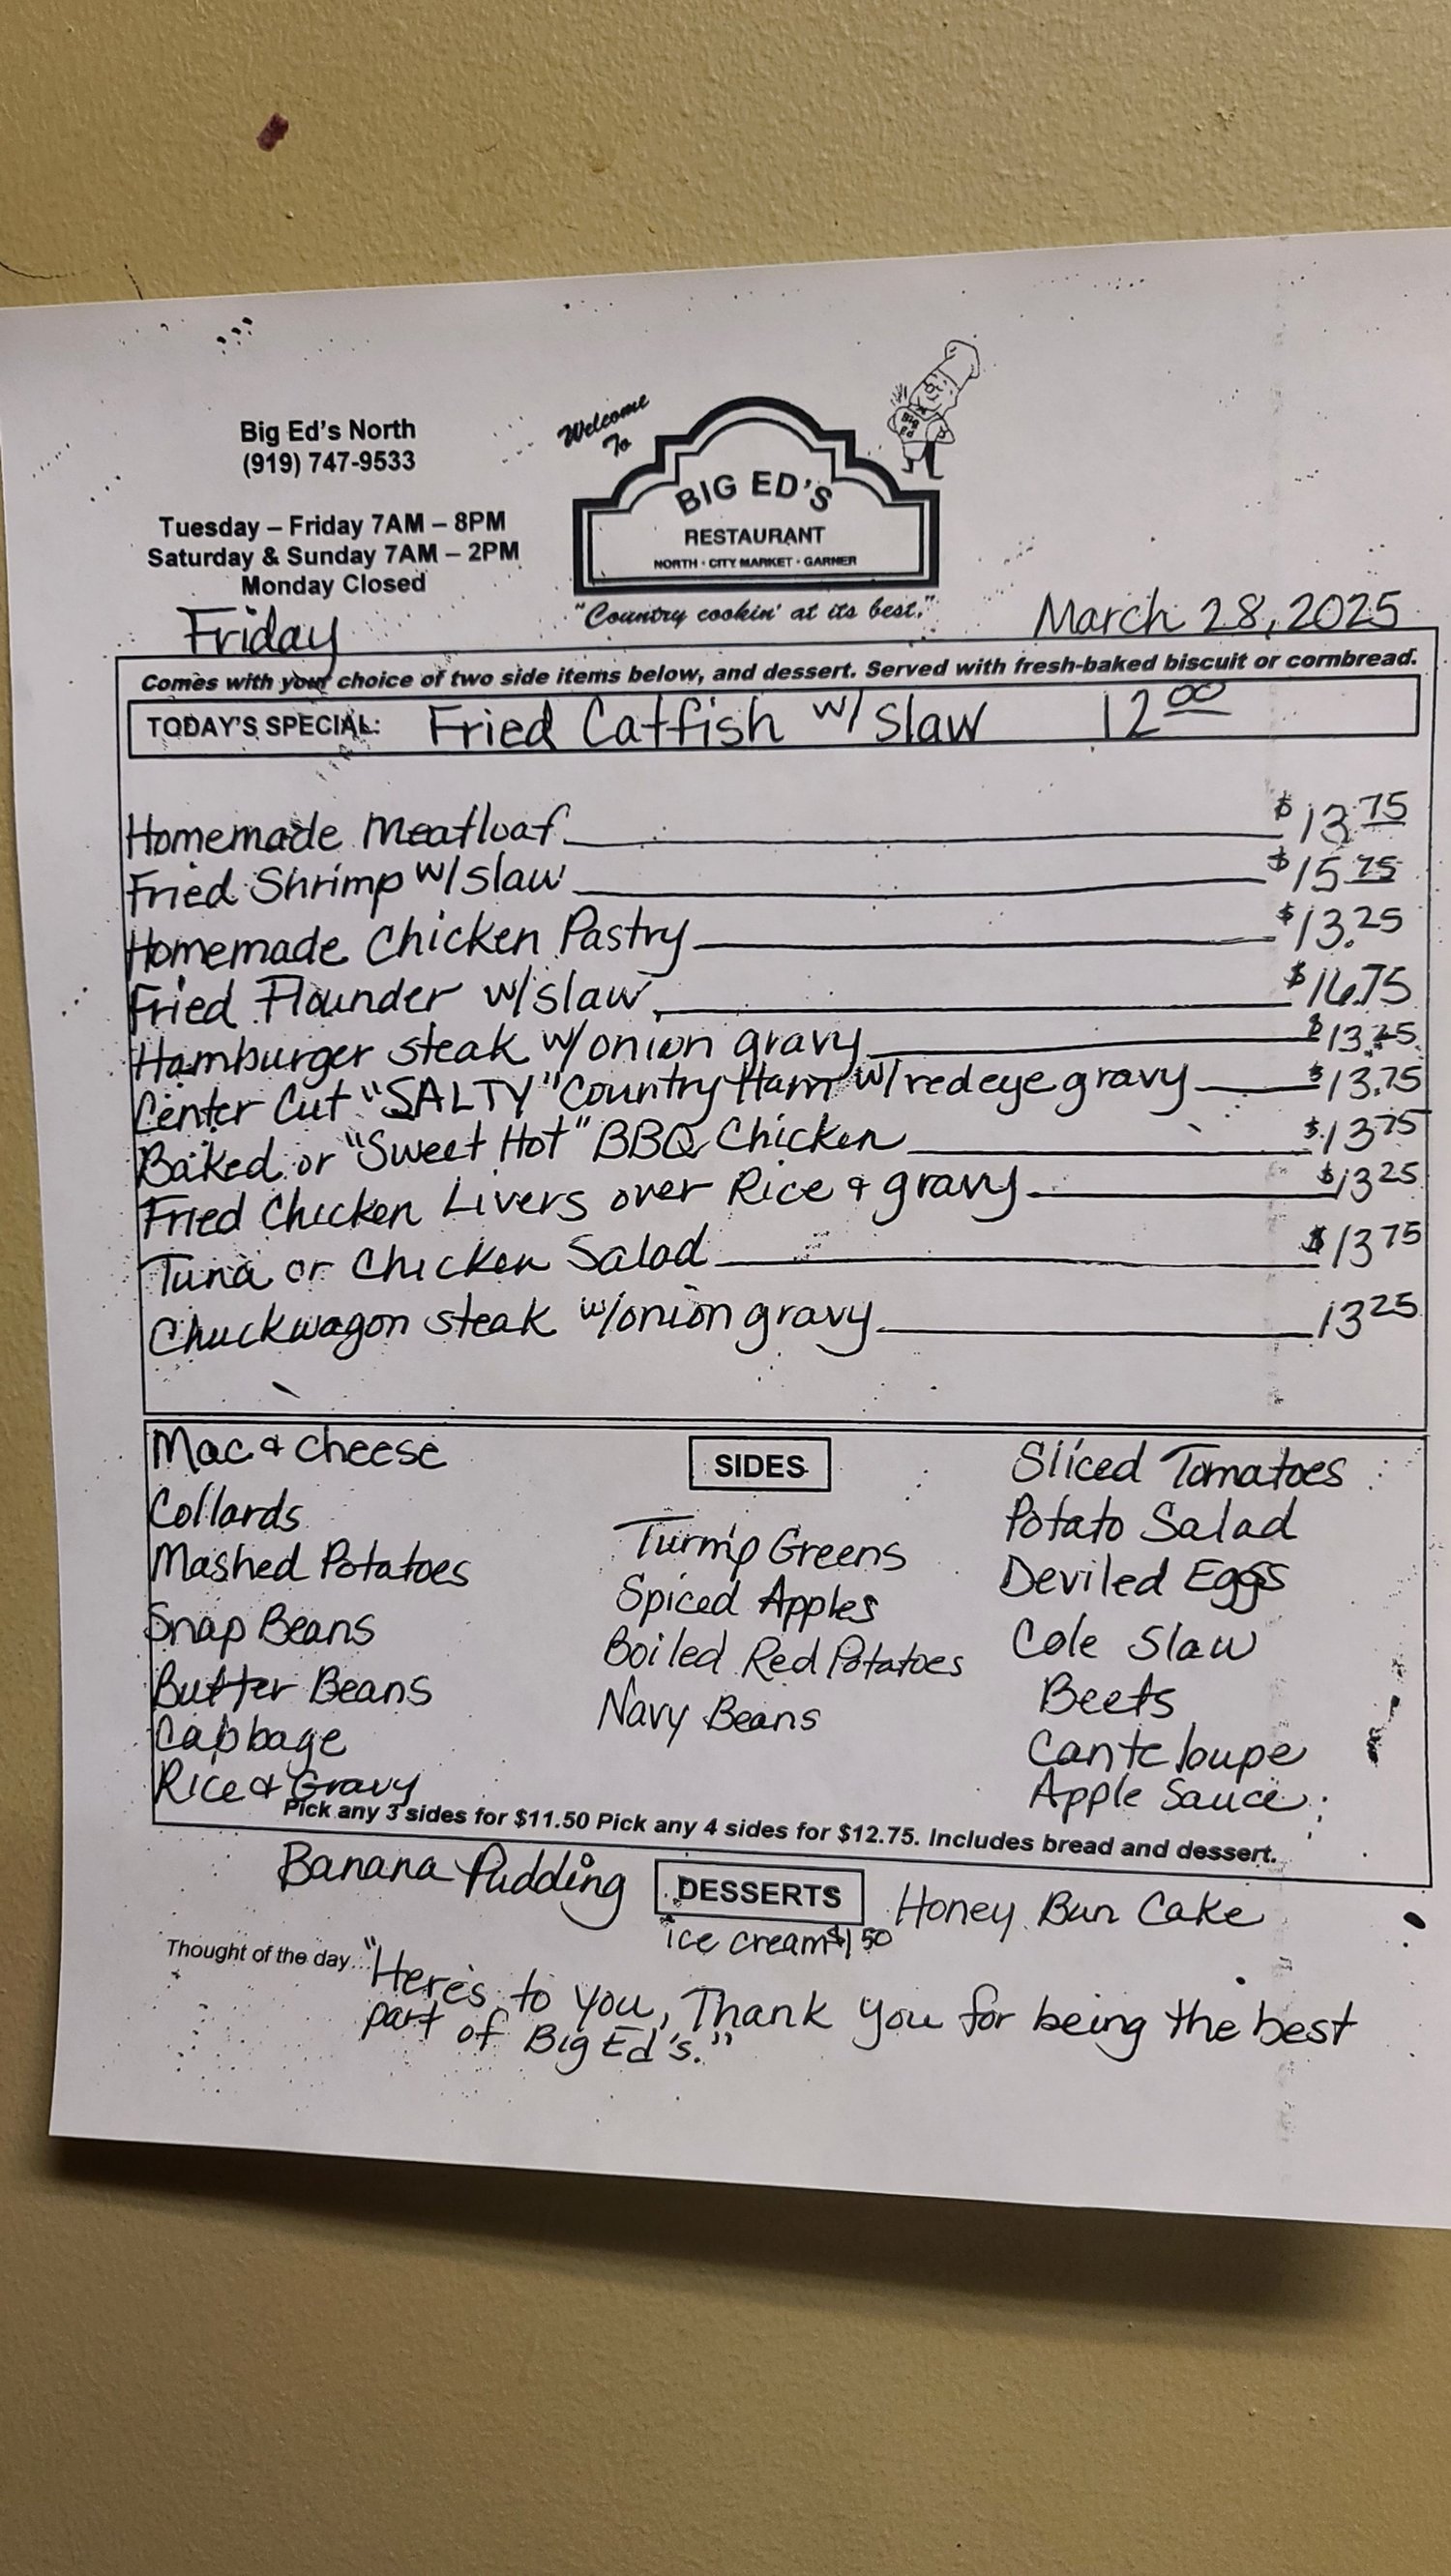 Big Ed's North
(919) 747-9533
Tuesday – Friday 7AM – 8PM
Saturday & Sunday 7AM – 2PM
Monday Closed
Welcome
To
Big Ed
BIG ED'S
RESTAURANT
NORTH · CITY MARKET · GARNER
"Country cookin' at its best."
Friday
March 28, 2025
Comes with your choice of two side items below, and dessert. Served with fresh-baked biscuit or cornbread.
TODAY'S SPECIAL: Fried Catfish w/ slaw 12 00
Homemade Meatloaf $13.75
Fried Shrimp w/ slaw $15 75
Homemade Chicken Pastry $13.25
Fried Flounder w/slaw $16.75
Hamburger steak w/onion gravy $13.25
Center Cut "SALTY" Country Ham w/redeye gravy $13.75
Baked or "Sweet Hot" BBQ Chicken $13 75
Fried Chicken Livers over Rice & gravy $13 25
Tuna or Chicken Salad $13 75
Chuckwagon steak w/onion gravy 13 25
SIDES
Mac & cheese
Collards
Mashed Potatoes
Snap Beans
Butter Beans
Cabbage
Rice & Gravy
Turnip Greens
Spiced Apples
Boiled Red Potatoes
Navy Beans
Sliced Tomatoes
Potato Salad
Deviled Eggs
Cole Slaw
Beets
Canteloupe
Apple Sauce
Pick any 3 sides for $11.50 Pick any 4 sides for $12.75. Includes bread and dessert.
Banana Pudding DESSERTS Honey Bun Cake
ice cream $1 50
Thought of the day... "Here's to you, Thank you for being the best
part of Big Ed's."